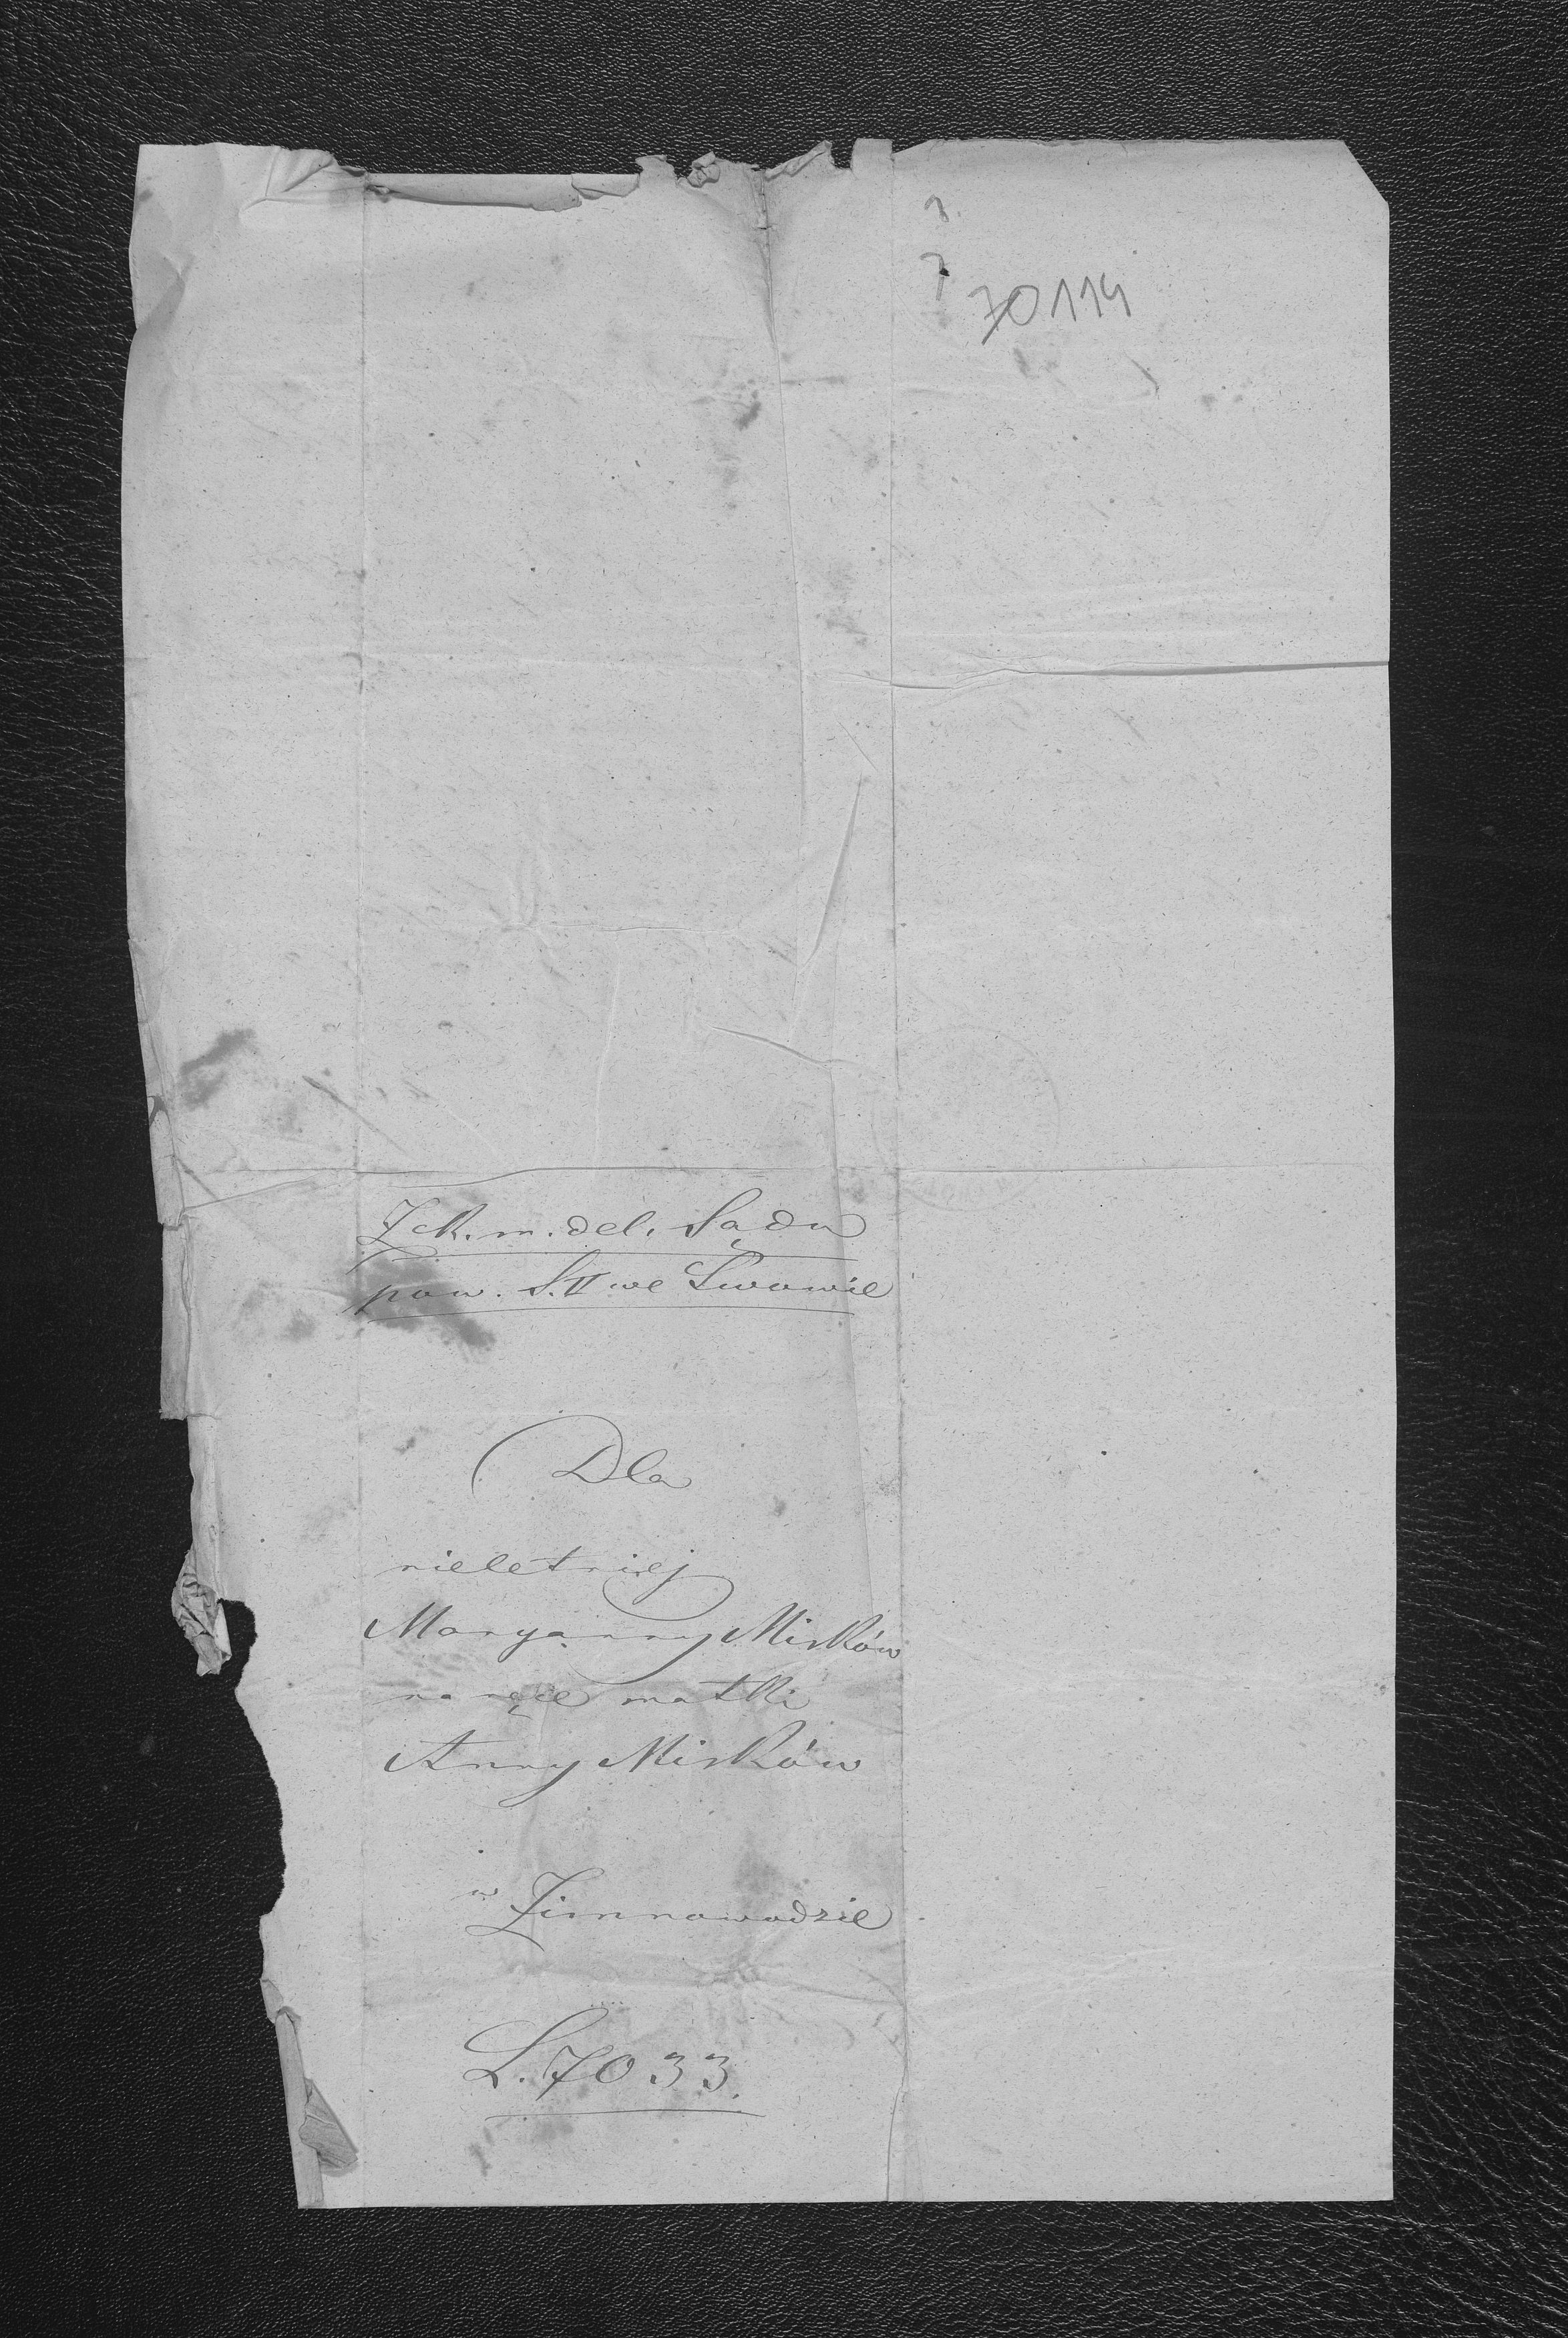 70114
Z ck. m. del. Sądu
pow. S. II we Lwowie
Dla
nieletniej
Maryanny Misków
na ręce matki
Anny Misków
w Zimnowodzie
L. 7033.